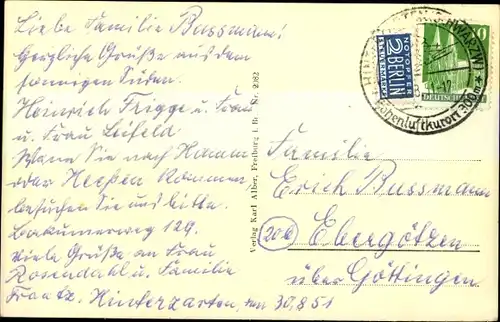 Liebe Familie Bussmann!
Herzliche Grüße aus dem
sonnigen Süden.
Heinrich Frigge u. Frau
u. Frau Leifeld
Wenn Sie nach Hamm
oder Heessen kommen,
besuchen Sie uns bitte.
Bakumerweg 129.
Viele Grüße an Frau
Rosendahl u. Familie
Frantz. Hinterzarten, den 30.8.51
Verlag Karl Alber, Freiburg i. Br. Nr. 2082
NOTOPFER
2 BERLIN
STEUERMARKE
10
DEUTSCHE
HINTERZARTEN (SCHWARZW)
Höhenluftkurort 900m
Familie
Erich Bussmann
20b Ebergötzen
über Göttingen